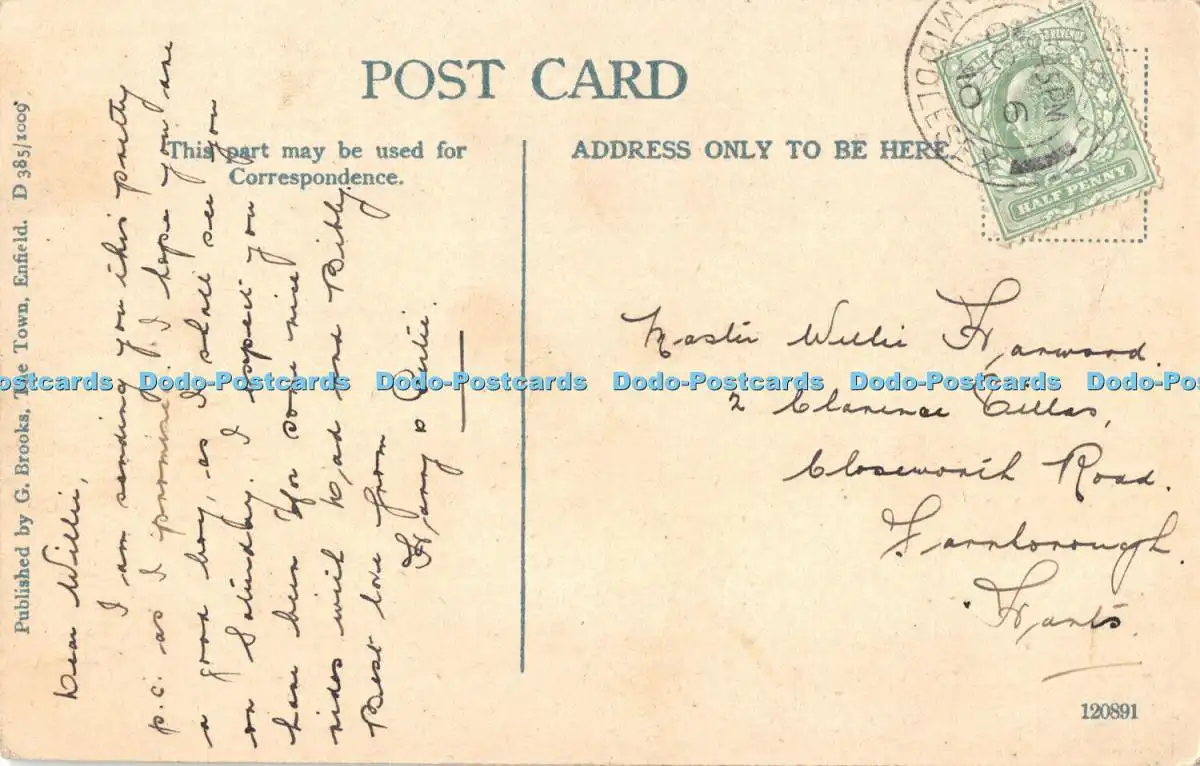 POST CARD
This part may be used for
Correspondence.
ADDRESS ONLY TO BE HERE
Published by G. Brooks, The Town, Enfield. D 385/1009
Dear Willie,
I am sending you this pretty
p.c. as I promised. I hope you are
a good boy, as I shall see you
on Saturday. I expect you
have been for some nice
rides with Dad and Bibby.
Best love from
Harry &
Master Willie Harwood.
2 Clarence Villas,
Closeworth Road.
Farnborough.
Hants.
MIDDLESEX
5 PM
OC 6
10
REVENUE
HALF PENNY
120891
Dodo-Postcards Dodo-Postcards Dodo-Postcards Dodo-Postcards Dodo-Postcards